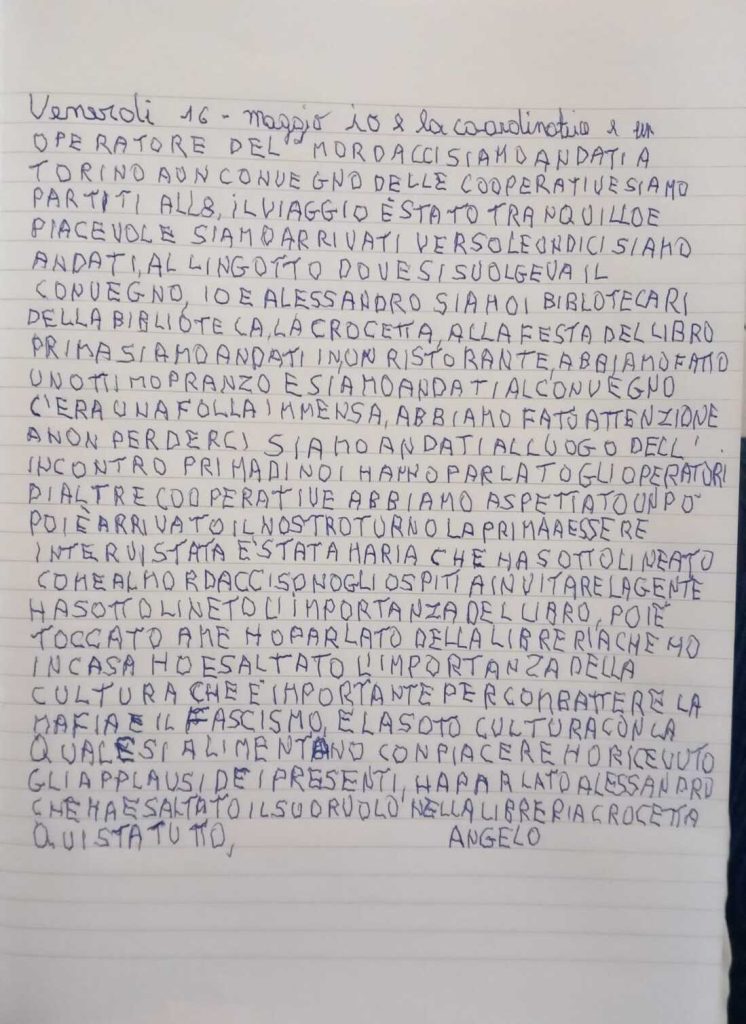 Venerdi 16 - maggio io e la coordinatrice e un
OPERATORE DEL MORDACCI SIAMO ANDATI A
TORINO A UN CONVEGNO DELLE COOPERATIVE SIAMO
PARTITI ALL8, IL VIAGGIO È STATO TRANQUILLO E
PIACEVOLE SIAMO ARRIVATI VERSO LE UNDICI SIAMO
ANDATI, AL LINGOTTO DOVE SI SVOLGEVA IL
CONVEGNO, IO E ALESSANDRO SIAMO I BIBLOTECARI
DELLA BIBLIOTECA, LA CROCETTA, ALLA FESTA DEL LIBRO
PRIMA SIAMO ANDATI IN, UN RISTORANTE, ABBIAMO FATTO
UN OTTIMO PRANZO E SIAMO ANDATI AL CONVEGNO
C'ERA UNA FOLLA IMMENSA, ABBIAMO FATO ATTENZIONE
A NON PERDERCI SIAMO ANDATI AL LUOGO DELL'
INCONTRO PRIMA DI NOI HANNO PARLATO GLI OPERATORI
DI ALTRE COOPERATIVE ABBIAMO ASPETTATO UN PO
POI È ARRIVATO IL NOSTRO TURNO LA PRIMA A ESSERE
INTERVISTATA E' STATA MARIA CHE HA SOTTOLINEATO
COME AL MORDACCI SONO GLI OSPITI A INVITARE LA GENTE
HA SOTTOLINETO L'IMPORTANZA DEL LIBRO, POI È
TOCCATO A ME HO PARLATO DELLA LIBRERIA CHE HO
IN CASA HO ESALTATO L'IMPORTANZA DELLA
CULTURA CHE E' IMPORTANTE PER COMBATTERE LA
MAFIA E IL FASCISMO, E LA SOTO CULTURA CON LA
QUALE SI ALIMENTANO CON PIACERE HO RICEVUTO
GLI APPLAUSI DEI PRESENTI, HA PARLATO ALESSANDRO
CHE HA ESALTATO IL SUO RUOLO NELLA LIBRERIA CROCETTA
QUI STA TUTTO, ANGELO